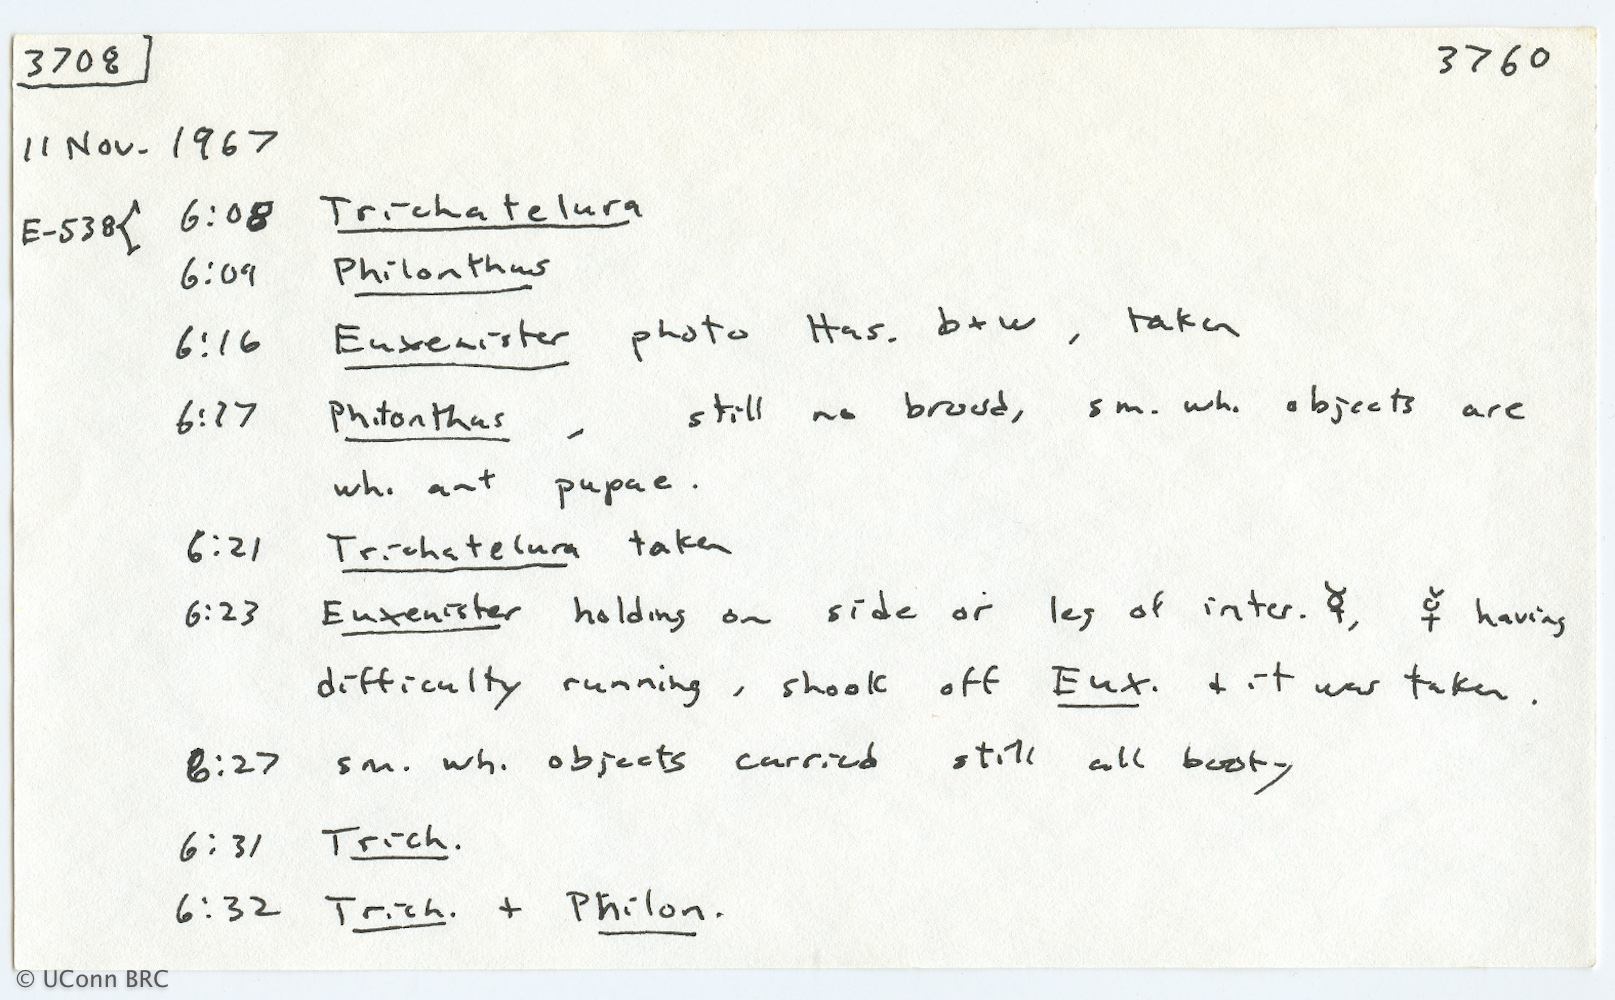 3708 3760
11 Nov. 1967
E-538{ 6:08 Trichatelura
6:09 Philonthus
6:16 Euxenister photo Has. b+w, taken
6:17 Philonthus, still no brood, sm. wh. objects are
wh. ant pupae.
6:21 Trichatelura taken
6:23 Euxenister holding on side or leg of inter. ☿, ☿ having
difficulty running, shook off Eux. + it was taken.
6:27 sm. wh. objects carried still all booty
6:31 Trich.
6:32 Trich. + Philon.
© UConn BRC